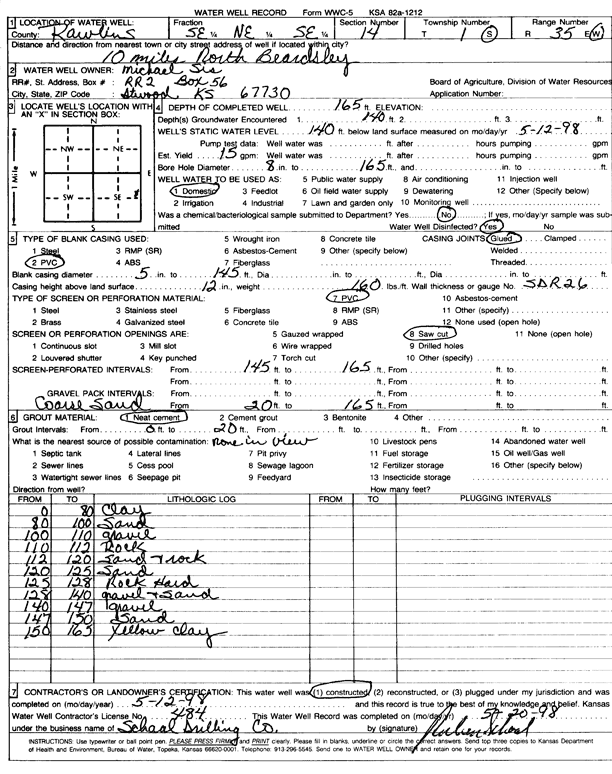 WATER WELL RECORD Form WWC-5 KSA 82a-1212
1 LOCATION OF WATER WELL: Fraction Section Number Township Number Range Number
County: Rawlins SE ¼ NE ¼ SE ¼ 14 T 1 S R 35 E/W
Distance and direction from nearest town or city street address of well if located within city?
10 miles North Beardsley
2 WATER WELL OWNER: Michael Sis
RR#, St. Address, Box # : RR2 Box 56 Board of Agriculture, Division of Water Resources
City, State, ZIP Code : Atwood KS 67730 Application Number:
3 LOCATE WELL'S LOCATION WITH AN "X" IN SECTION BOX:
N
NW NE
W E
SW SE
S
1 Mile
4 DEPTH OF COMPLETED WELL. 165 ft. ELEVATION:
Depth(s) Groundwater Encountered 1. 140 ft. 2. ft. 3. ft.
WELL'S STATIC WATER LEVEL 140 ft. below land surface measured on mo/day/yr 5-12-98
Pump test data: Well water was ft. after hours pumping gpm
Est. Yield 15 gpm: Well water was ft. after hours pumping gpm
Bore Hole Diameter 8 in. to 165 ft., and in. to ft.
WELL WATER TO BE USED AS: 5 Public water supply 8 Air conditioning 11 Injection well
1 Domestic 3 Feedlot 6 Oil field water supply 9 Dewatering 12 Other (Specify below)
2 Irrigation 4 Industrial 7 Lawn and garden only 10 Monitoring well
Was a chemical/bacteriological sample submitted to Department? Yes No ; If yes, mo/day/yr sample was submitted
Water Well Disinfected? Yes No
5 TYPE OF BLANK CASING USED: 5 Wrought iron 8 Concrete tile CASING JOINTS: Glued Clamped
1 Steel 3 RMP (SR) 6 Asbestos-Cement 9 Other (specify below) Welded
2 PVC 4 ABS 7 Fiberglass Threaded
Blank casing diameter 5 in. to 145 ft., Dia in. to ft., Dia in. to ft.
Casing height above land surface 12 in., weight 160 lbs./ft. Wall thickness or gauge No. SDR26
TYPE OF SCREEN OR PERFORATION MATERIAL: 7 PVC 10 Asbestos-cement
1 Steel 3 Stainless steel 5 Fiberglass 8 RMP (SR) 11 Other (specify)
2 Brass 4 Galvanized steel 6 Concrete tile 9 ABS 12 None used (open hole)
SCREEN OR PERFORATION OPENINGS ARE: 5 Gauzed wrapped 8 Saw cut 11 None (open hole)
1 Continuous slot 3 Mill slot 6 Wire wrapped 9 Drilled holes
2 Louvered shutter 4 Key punched 7 Torch cut 10 Other (specify)
SCREEN-PERFORATED INTERVALS: From 145 ft. to 165 ft., From ft. to ft.
From ft. to ft., From ft. to ft.
GRAVEL PACK INTERVALS: From 20 ft. to 165 ft., From ft. to ft.
Coarse Sand From ft. to ft., From ft. to ft.
6 GROUT MATERIAL: 1 Neat cement 2 Cement grout 3 Bentonite 4 Other
Grout Intervals: From 0 ft. to 20 ft., From ft. to ft., From ft. to ft.
What is the nearest source of possible contamination: none in view 10 Livestock pens 14 Abandoned water well
1 Septic tank 4 Lateral lines 7 Pit privy 11 Fuel storage 15 Oil well/Gas well
2 Sewer lines 5 Cess pool 8 Sewage lagoon 12 Fertilizer storage 16 Other (specify below)
3 Watertight sewer lines 6 Seepage pit 9 Feedyard 13 Insecticide storage
Direction from well? How many feet?
FROM TO LITHOLOGIC LOG FROM TO PLUGGING INTERVALS
0 80 Clay
80 100 Sand
100 110 gravel
110 112 Rock
112 120 Sand + rock
120 125 Sand
125 128 Rock Hard
128 140 gravel + Sand
140 147 gravel
147 150 Sand
150 165 Yellow Clay
7 CONTRACTOR'S OR LANDOWNER'S CERTIFICATION: This water well was (1) constructed, (2) reconstructed, or (3) plugged under my jurisdiction and was
completed on (mo/day/year) 5-12-98 and this record is true to the best of my knowledge and belief. Kansas
Water Well Contractor's License No. 484 This Water Well Record was completed on (mo/day/yr) 5-20-98
under the business name of Schaal Drilling Co. by (signature)
INSTRUCTIONS: Use typewriter or ball point pen. PLEASE PRESS FIRMLY and PRINT clearly. Please fill in blanks, underline or circle the correct answers. Send top three copies to Kansas Department
of Health and Environment, Bureau of Water, Topeka, Kansas 66620-0001. Telephone: 913-296-5545. Send one to WATER WELL OWNER and retain one for your records.